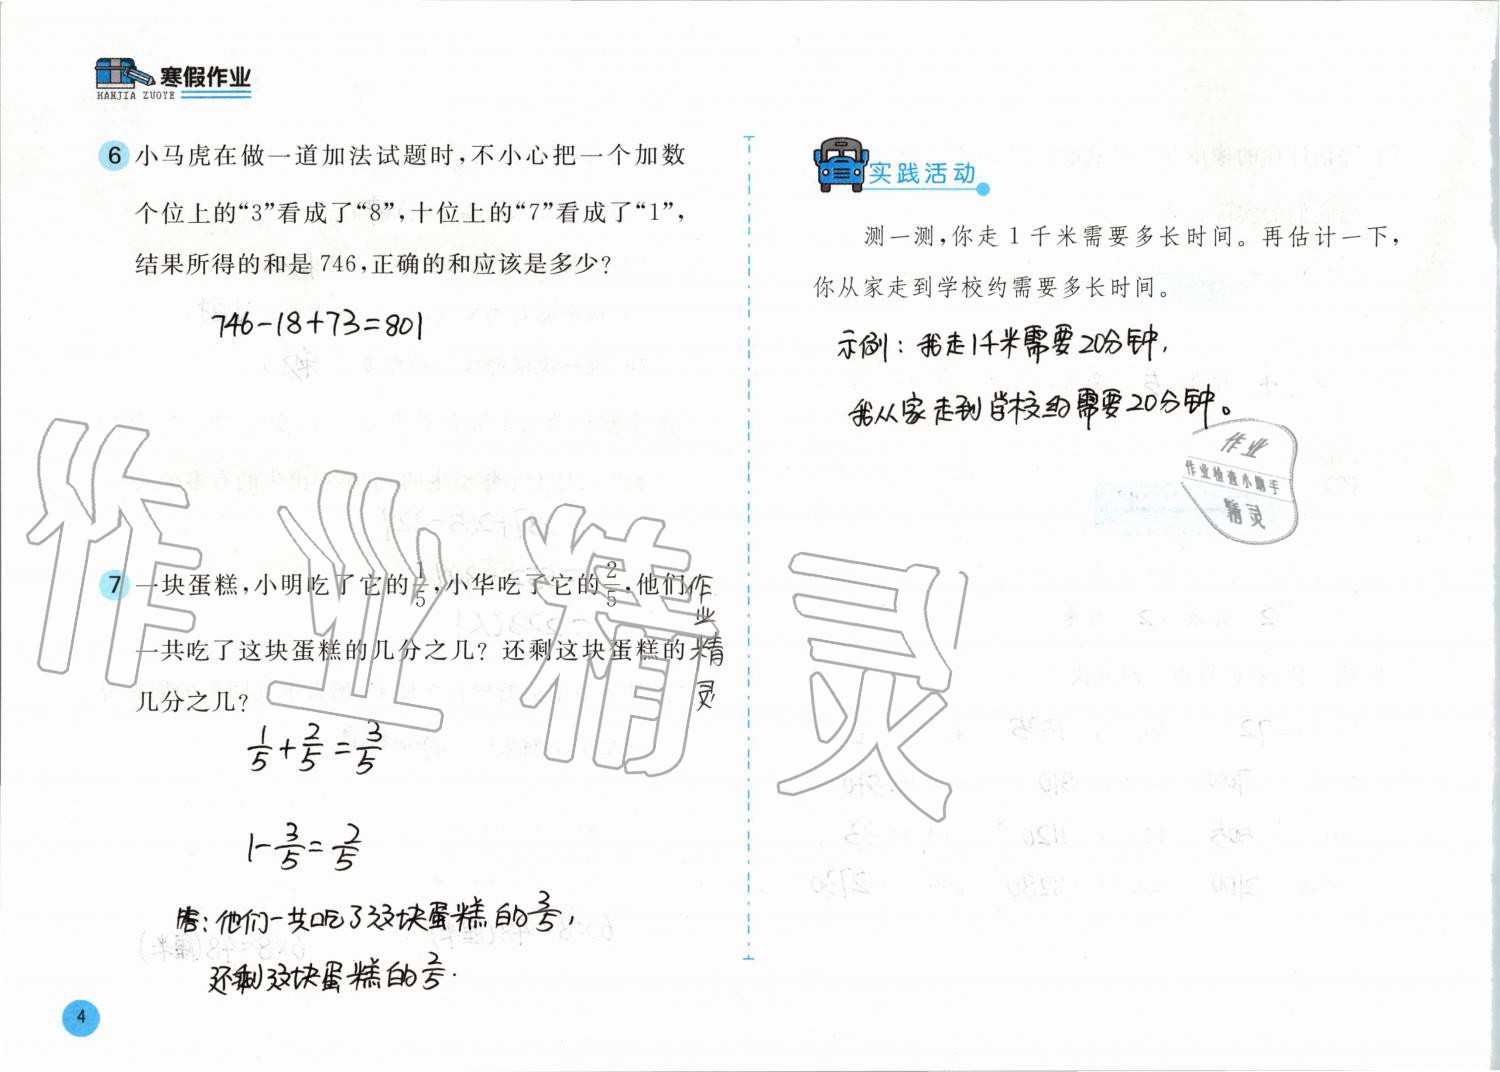 寒假作业
HANJIA ZUOYE
6 小马虎在做一道加法试题时,不小心把一个加数
个位上的“3”看成了“8”,十位上的“7”看成了“1”,
结果所得的和是 746,正确的和应该是多少?
746-18+73=801
7 一块蛋糕,小明吃了它的1/5,小华吃了它的2/5,他们
一共吃了这块蛋糕的几分之几? 还剩这块蛋糕的
几分之几?
作业精灵
1/5+2/5=3/5
1-3/5=2/5
答:他们一共吃了这块蛋糕的3/5,
还剩这块蛋糕的2/5.
4
实践活动
测一测,你走 1 千米需要多长时间。再估计一下,
你从家走到学校约需要多长时间。
示例:我走1千米需要20分钟,
我从家走到学校约需要20分钟。
作业
作业检查小助手
精灵
作业精灵